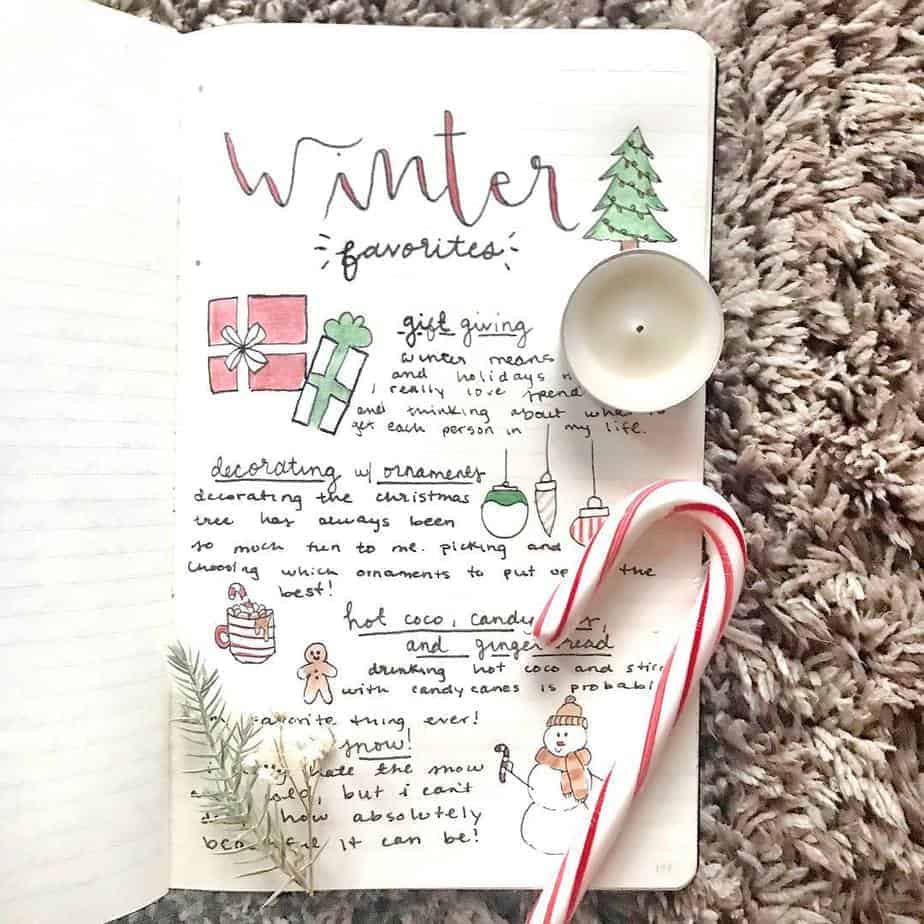 winter
favorites
gift giving
winter means
and holidays
I really love
and thinking about
get each person in my life.
decorating w/ ornaments
decorating the christmas
tree has always been
so much fun to me. picking and
choosing which ornaments to put up the
best!
hot coco, candy
and ginger
drinking hot coco and
with candy canes is
favorite thing ever!
snow!
hate the snow
but i can't
how absolutely
it can be!